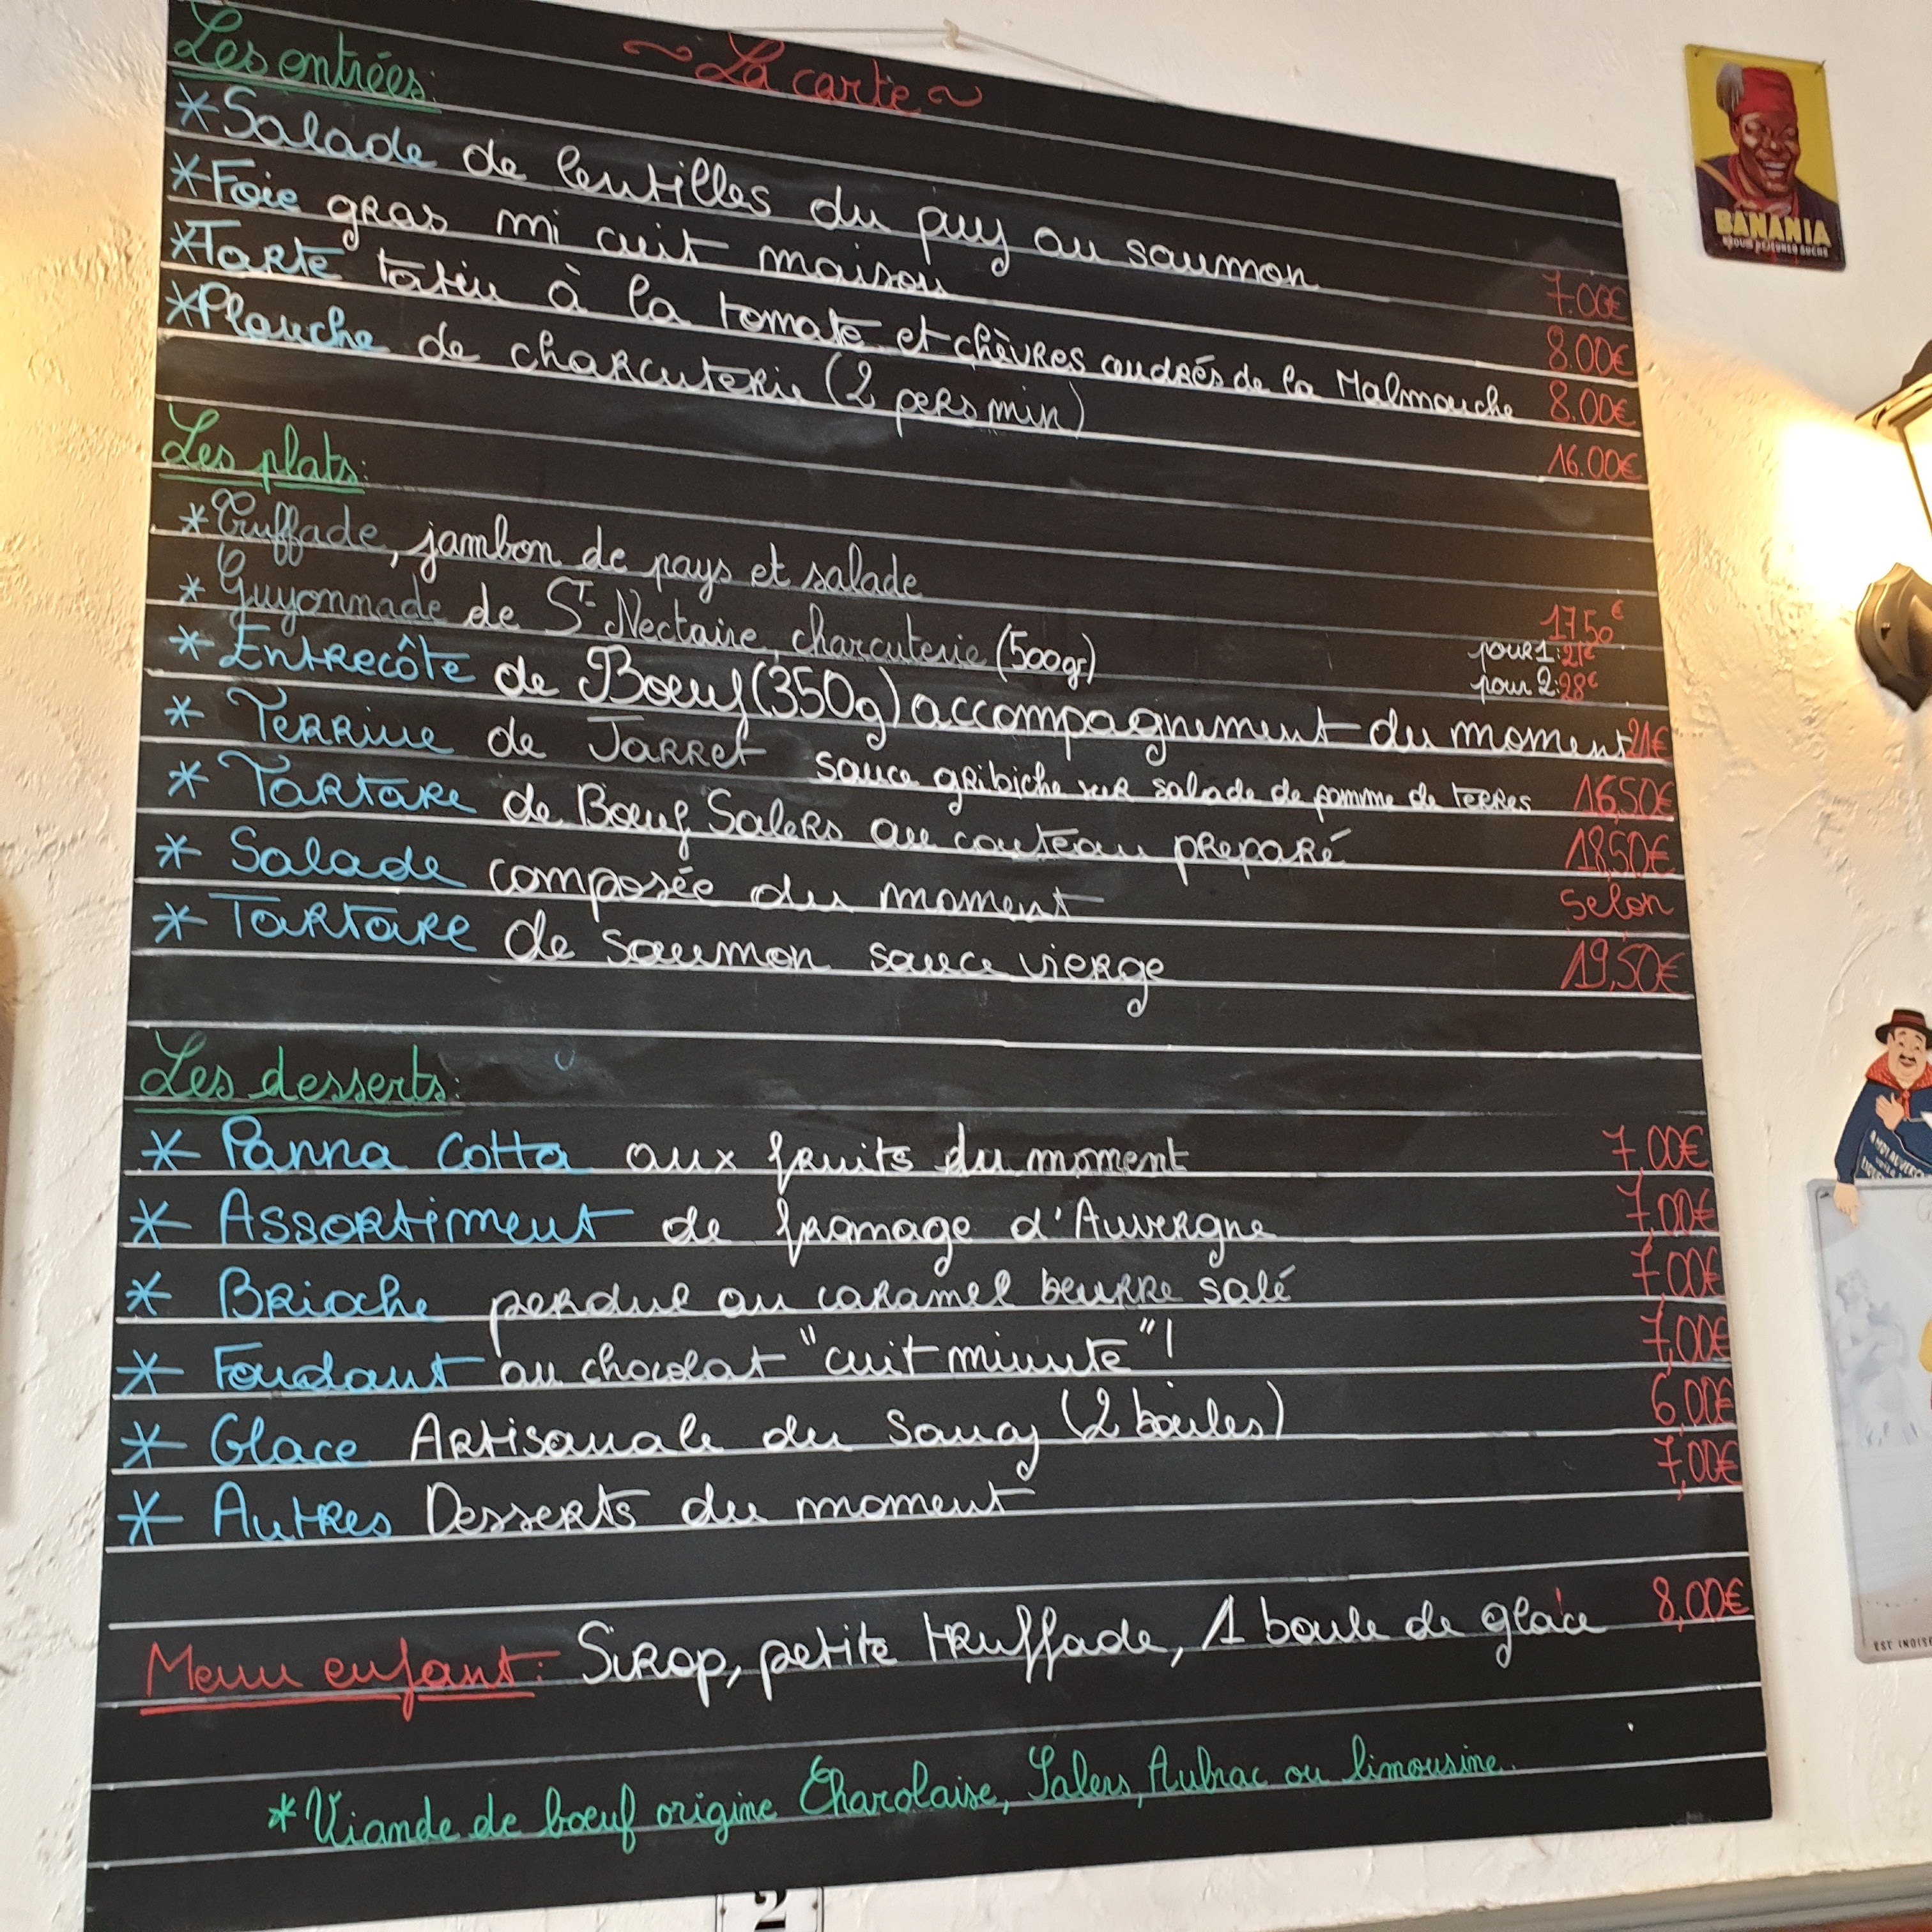 ~ La carte ~
Les entrées:
*Salade de lentilles du puy au saumon 7.00€
*Foie gras mi cuit maison 8.00€
*Tarte tatin à la tomate et chèvres cendrés de la Malmouche 8.00€
*Planche de charcuterie (2 pers min) 16.00€
Les plats:
*Truffade, jambon de pays et salade 17.50€
* Guyonnade de St-Nectaire, charcuterie (500gr) pour 1: 21€
pour 2: 28€
* Entrecôte de Boeuf (350g) accompagnement du moment 21€
* Terrine de Jarret sauce gribiche sur salade de pomme de terres 16,50€
* Tartare de Boeuf Salers au couteau preparé 18,50€
* Salade composée du moment selon
* Tartare de saumon sauce vierge 19,50€
Les desserts:
* Panna Cotta aux fruits du moment 7,00€
* Assortiment de fromage d'Auvergne 7,00€
* Brioche perdue au caramel beurre salé 7,00€
* Fondant au chocolat "cuit minute"! 7,00€
* Glace Artisanale du Sancy (2 boules) 6,00€
* Autres Desserts du moment 7,00€
Menu enfant: Sirop, petite truffade, 1 boule de glace 8,00€
*Viande de boeuf origine Charolaise, Salers, Aubrac ou limousine.
BANANIA
EXQUIS DÉJEUNER SUCRÉ
2